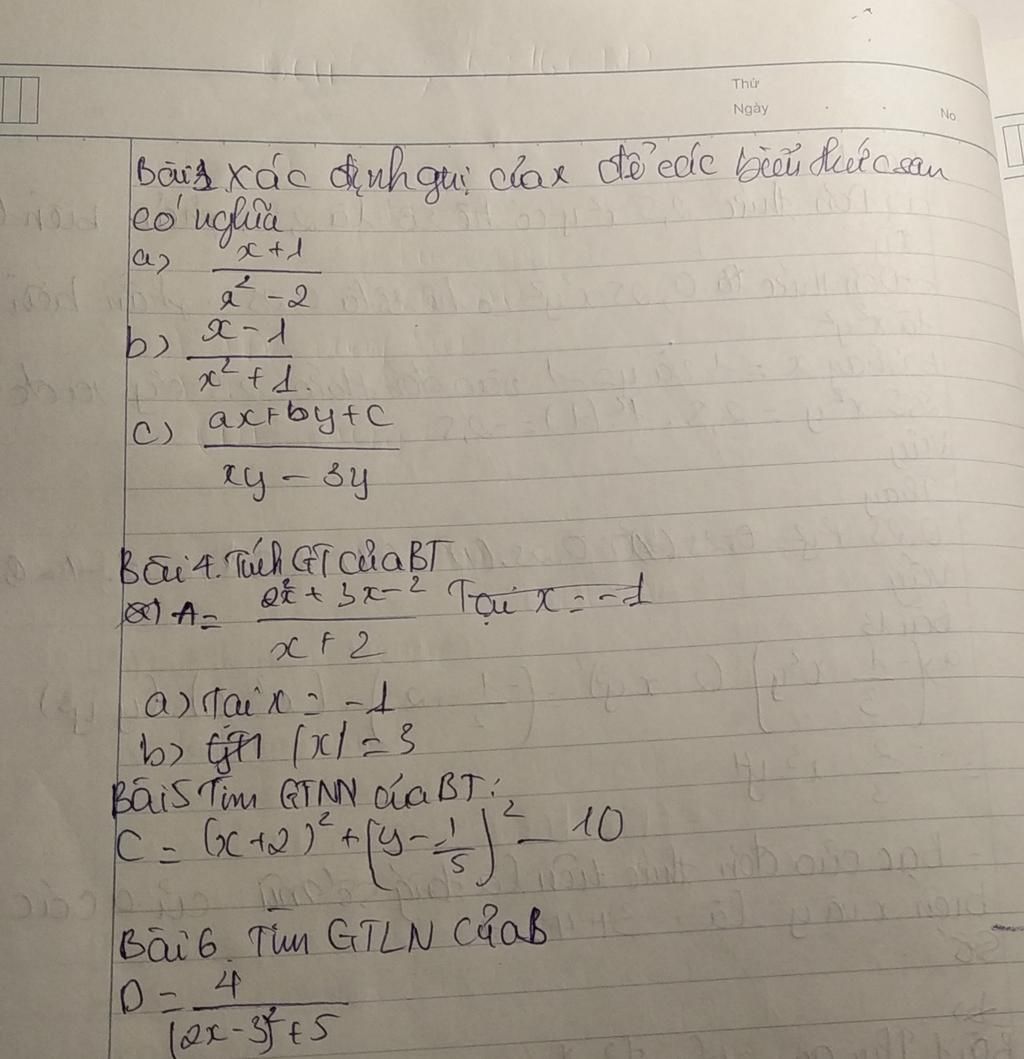 Thứ
Ngày
No
Bài 3 xác định giị của x để các biểu thức sau
có nghĩa
a) \frac{x+1}{x^2-2}
b) \frac{x-1}{x^2+1}.
c) \frac{ax+by+c}{xy-3y}
Bài 4. Tính GT của BT
A = \frac{2x^2+3x-2}{x+2} Tại x = -1
a) Tại x = -1
b) |x| = 3
Bài 5 Tìm GTNN của BT:
C = (x+2)^2 + (y-\frac{1}{5})^2 - 10
Bài 6. Tìm GTLN của B
D = \frac{4}{(2x-3)^2+5}